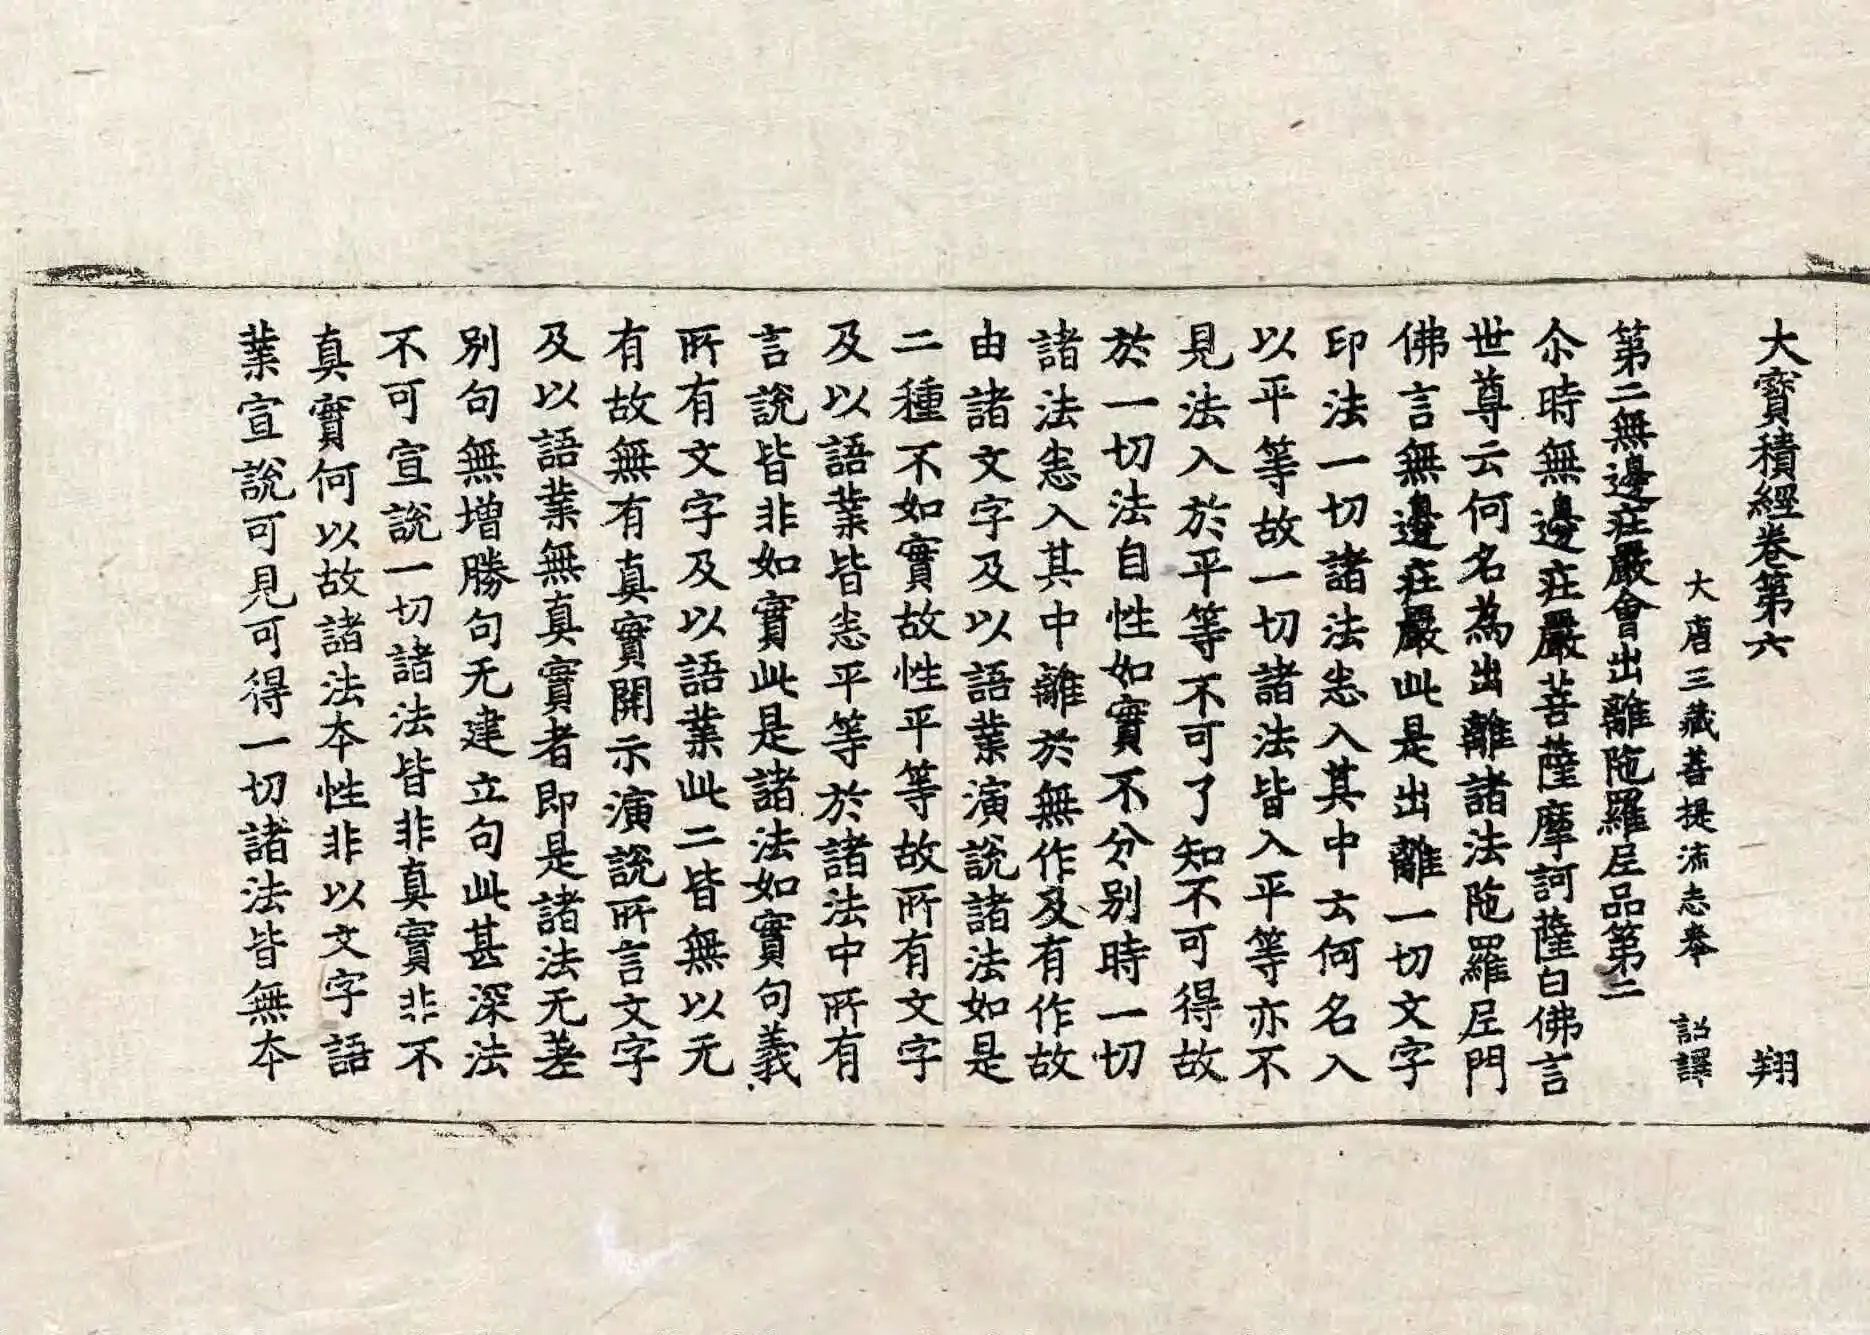 大寶積經卷第六 翔
大唐三藏菩提流志奉 詔譯
第二無邊莊嚴會出離陁羅尼品第二
尒時無邊莊嚴菩薩摩訶薩白佛言
世尊云何名為出離諸法陁羅尼門
佛言無邊莊嚴此是出離一切文字
印法一切諸法悉入其中云何名入
以平等故一切諸法皆入平等亦不
見法入於平等不可了知不可得故
於一切法自性如實不分別時一切
諸法悉入其中離於無作及有作故
由諸文字及以語業演說諸法如是
二種不如實故性平等故所有文字
及以語業皆悉平等於諸法中所有
言說皆非如實此是諸法如實句義
所有文字及以語業此二皆無以无
有故無有真實開示演說所言文字
及以語業無真實者即是諸法无差
別句無增勝句无建立句此甚深法
不可宣說一切諸法皆非真實非不
真實何以故諸法本性非以文字語
業宣說可見可得一切諸法皆無本